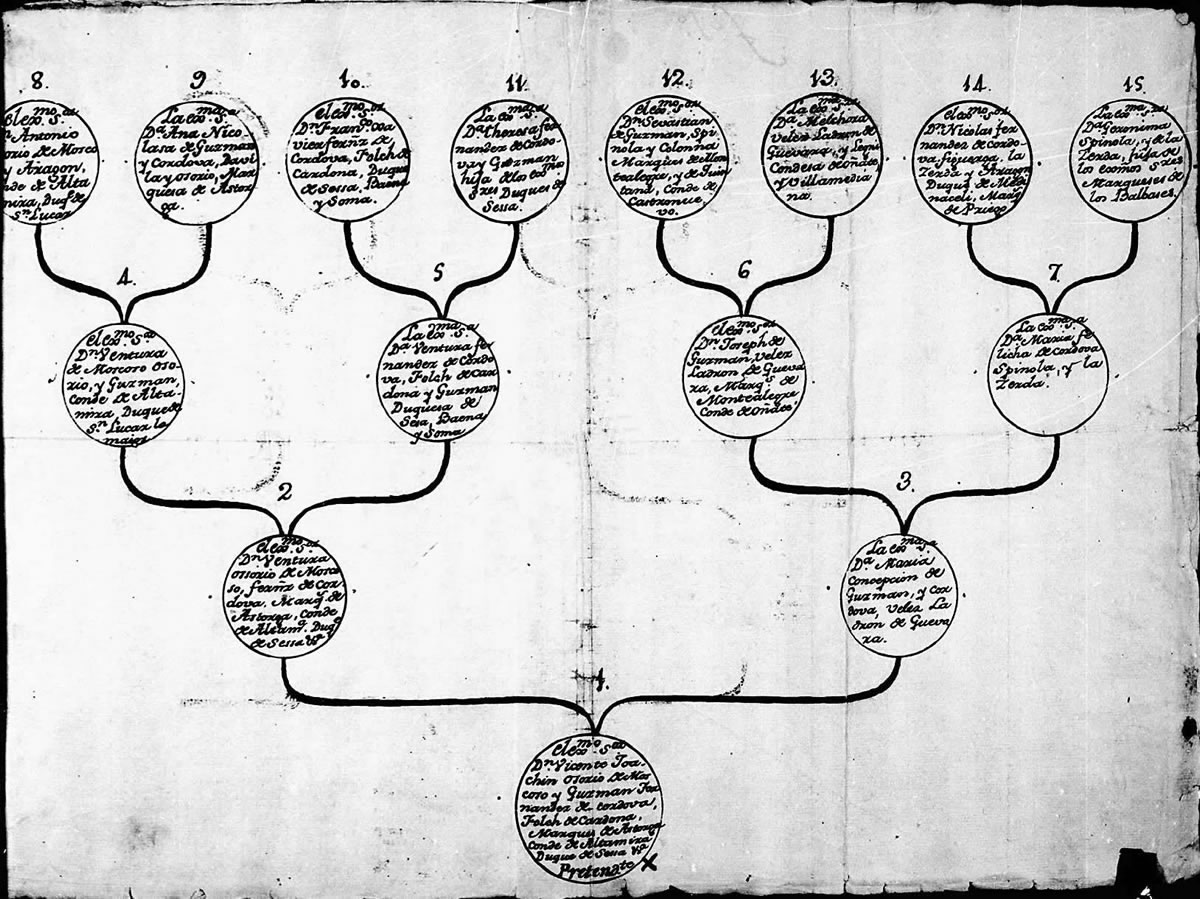 8.
9
10
11.
12.
13.
14
15.
el exmo. Sor.
Dn. Antonio
Osorio de Mosco
y Aragon,
Conde de Alta
mira, Duq. de
Sn. Lucar
La exma. Sa.
Da. Ana Nico-
lasa de Guzman
y Cordova, Davi
la y Osorio, Mar
quesa de Astor
ga.
el exmo. Sor.
Dn. Franco. Xa
vier fernz. de
Cordova, Folch de
Cardona, Duque
de Sessa. Baena
y Soma.
La exma. Sa.
Da. Theresa fer
nandez de Cordo
va y Guzman
hija de los exmos
Sres Duques de
Sessa.
el exmo. Sor
Dn. Sevastian
de Guzman, Spi
nola y Colonna
Marques de Mon
tealegre, y de Quin
tana, Conde de
Castronue
vo.
La exma. Sa.
Da. Melchora
Velez Ladron de
Guevara, y
Condesa de Oñate,
y Villamedia
na.
el exmo. Sor
Dn. Nicolas fer
nandez de Cordo-
va figueroa, la
Zerda y Aragon
Duque de Medi
naceli, Marq.
de Priego
La exma. Sa.
Da. Geronima
Spinola, y de la
Zerda, hija de
los exmos Sres
Marqueses de
los Balbases.
4.
5
6
7.
el exmo. Sor
Dn. Ventura
de Morcoro Oso-
rio, y Guzman,
Conde de Alta-
mira, Duque de
Sn. Lucar la
maior
La exma. Sa.
Da. Ventura fer
nandez de Cordo
va, Folch de Car
dona y Guzman
Duquesa de
Sesa, Baena
y Soma
el exmo. Sor
Dn. Joseph de
Guzman, Velez
Ladron de Gueva
ra, Marqs. de
Montealegre
Conde de Oñate
La exma. Sa.
Da. Maria fe
licha de Cordova
Spinola, y la
Zerda.
2
3.
el exmo. Sor
Dn. Ventura
Ossorio de Mosco
so, fernz. de Cor
dova. Marq. de
Astorga, Conde
de Altama. Duqe
de Sessa Va
La exma. Sa.
Da. Maria
Concepcion de
Guzman, y Cor
dova, Velez La
dron de Gueva
ra.
1.
el exmo. Sor
Dn. Vicente Joa-
chin Osorio de Mos
coso y Guzman Fer
nandez de Cordova,
Folch de Cardona,
Marques de Astorga
Conde de Altamira
Duque de Sessa Va
Pretendte X